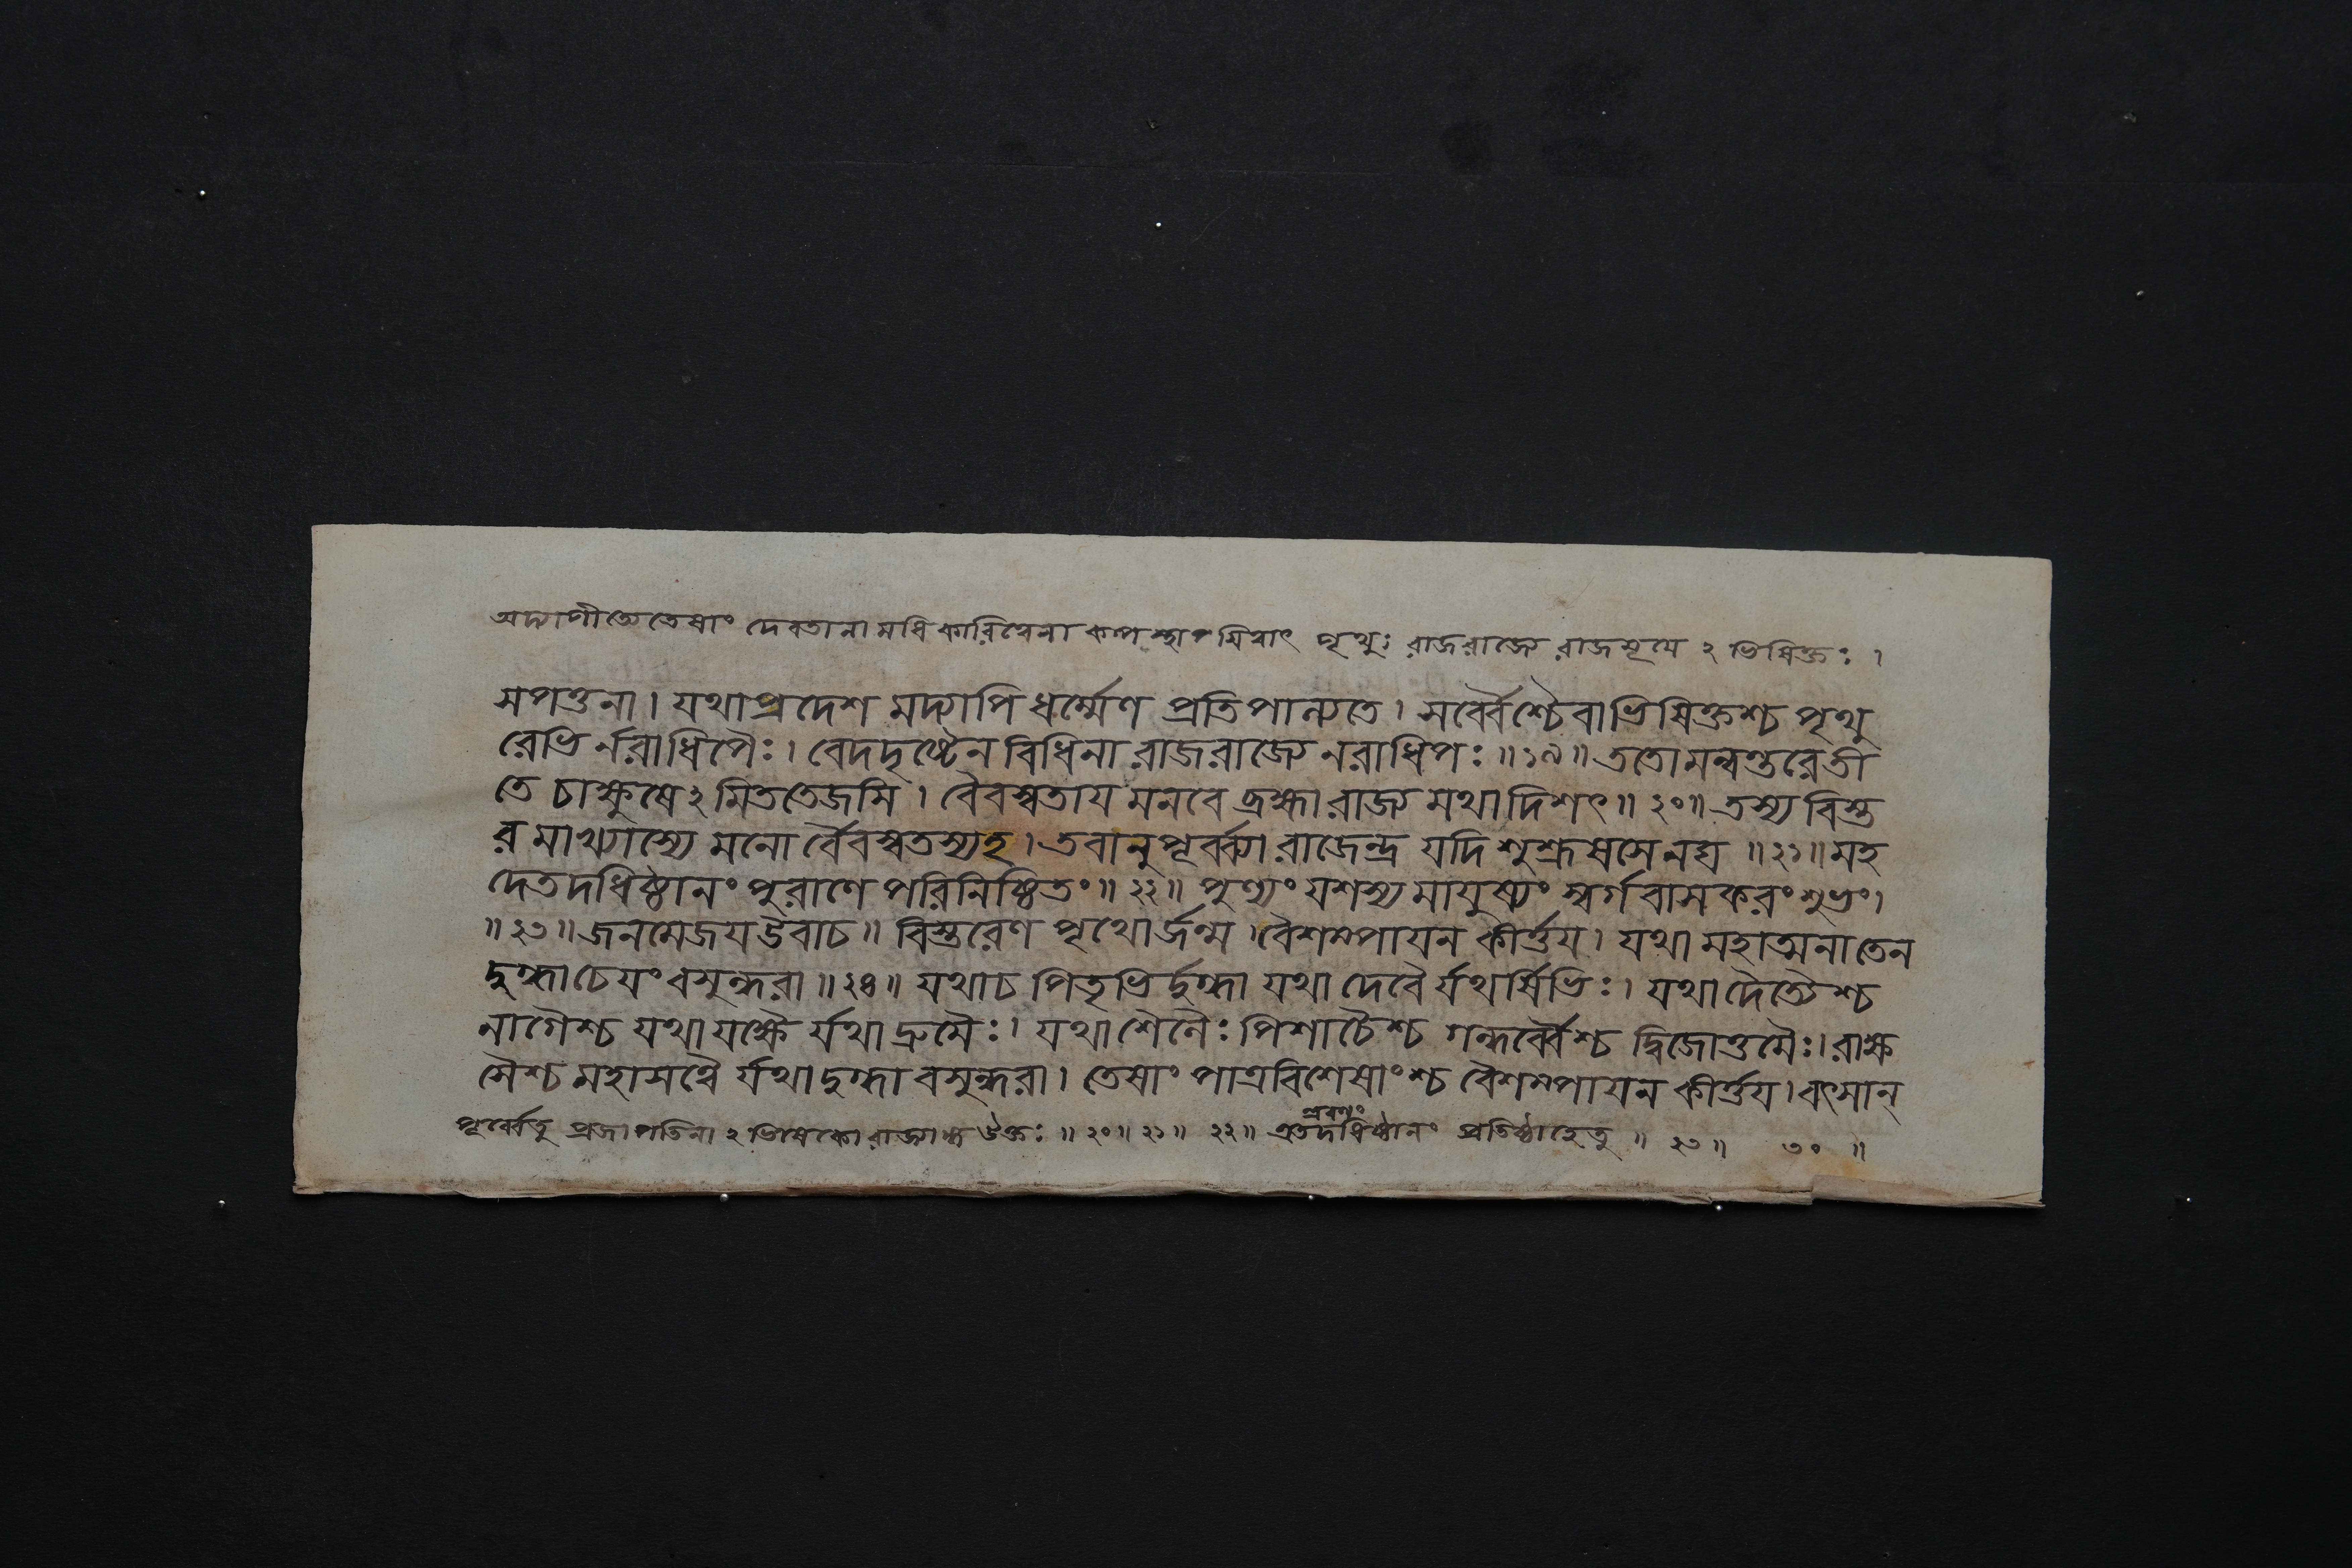 অদ্যাপীতে তেষাং দেবতানামধিকারিত্বেনা কল্পস্থাপয়িত্বাৎ পৃথুঃ রাজরাজ্যে রাজসূয়ে ঽ ভিষিক্তঃ ।
সপত্তনা । যথাপ্রদেশ মদ্যাপি ধর্ম্মেণ প্রতিপাল্যতে । সর্ব্বৈশ্চৈবাভিষিক্তশ্চ পৃথু
রেভি র্নরাধিপৈঃ । বেদদৃষ্টেন বিধিনা রাজরাজ্যে নরাধিপঃ ॥১৯॥ ততোমন্বন্তরেতী
তে চাক্ষুষে ঽমিততেজসি । বৈবস্বতায মনবে ব্রহ্মা রাজ্য মথাদিশৎ ॥২০॥ তস্য বিস্ত
র মাখ্যাস্যে মনো র্বৈবস্বতস্যহ । তবানুপূর্ব্ব্যা রাজেন্দ্র যদি শুশ্রূষসেনঘ ॥২১॥ মহ
দেতদধিষ্ঠানং পুরাণে পরিনিষ্ঠিতং ॥২২॥ পুণ্যং যশস্য মাযুষ্যং স্বর্গবাসকরং শুভং ।
॥২৩॥ জনমেজযউবাচ ॥ বিস্তরেণ পৃথোর্জন্ম । বৈশম্পাযন কীর্ত্তয । যথা মহাত্মনাতেন
দুগ্ধাচেযং বসুন্ধরা ॥২৪॥ যথাচ পিতৃভির্দুগ্ধা যথা দেবৈ র্যথর্ষিভিঃ । যথা দৈত্যৈশ্চ
নাগৈশ্চ যথা যক্ষৈ র্যথা দ্রুমৈঃ । যথা শৈনৈঃ পিশাচৈশ্চ গন্ধর্ব্বৈশ্চ দ্বিজোত্তমৈঃ । রাক্ষ
সৈশ্চ মহাসত্বৈ র্যথা দুগ্ধা বসুন্ধরা । তেষাং পাত্রবিশেষাংশ্চ বৈশম্পাযন কীর্ত্তয । বৎসান্
পূর্ব্বেতু প্রজাপতিনা ঽ ভিষেকো রাজ্যস্য উক্তঃ ॥২০॥২১॥ ২২॥ এতদধিষ্ঠানং প্রতিষ্ঠাহেতু ॥ ২৩॥ ৩০ ॥